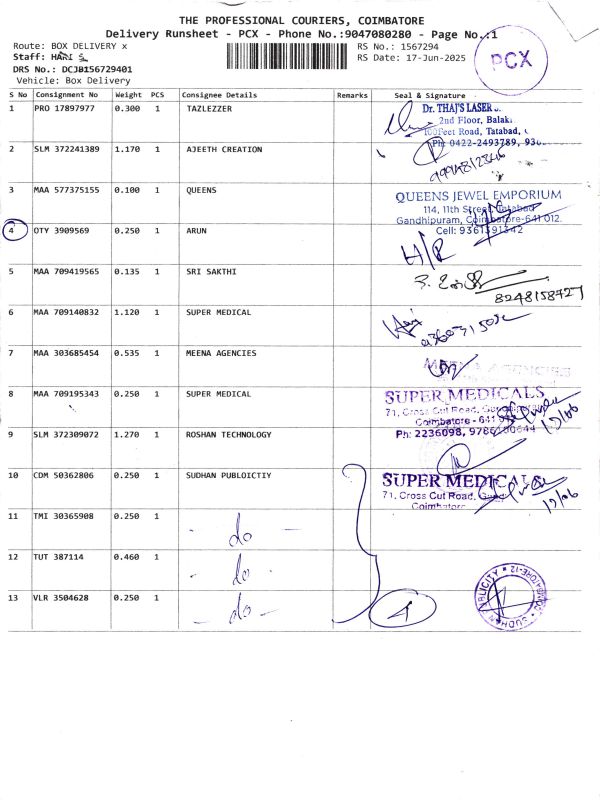 THE PROFESSIONAL COURIERS, COIMBATORE
Delivery Runsheet - PCX - Phone No.:9047080280 - Page No.:1
Route: BOX DELIVERY x
Staff: HARI S
DRS No.: DCJB156729401
Vehicle: Box Delivery
RS No.: 1567294
RS Date: 17-Jun-2025
PCX
S No Consignment No Weight PCS Consignee Details Remarks Seal & Signature
1 PRO 17897977 0.300 1 TAZLEZZER
Dr. THAJ'S LASER
2nd Floor, Balak
100Feet Road, Tatabad,
Ph: 0422-2493789, 936
2 SLM 372241389 1.170 1 AJEETH CREATION
3 MAA 577375155 0.100 1 QUEENS
QUEENS JEWEL EMPORIUM
114, 11th Street, Tatabad
Gandhipuram, Coimbatore-641 012.
Cell: 9361591342
4 OTY 3909569 0.250 1 ARUN
H/R
5 MAA 709419565 0.135 1 SRI SAKTHI
8248158427
6 MAA 709140832 1.120 1 SUPER MEDICAL
7 MAA 303685454 0.535 1 MEENA AGENCIES
8 MAA 709195343 0.250 1 SUPER MEDICAL
SUPER MEDICALS
71, Cross Cut Road,
Coimbatore - 641
Ph: 2236098,
17/06
9 SLM 372309072 1.270 1 ROSHAN TECHNOLOGY
10 CDM 50362806 0.250 1 SUDHAN PUBLOICTIY
SUPER MEDICALS
71, Cross Cut Road,
Coimbatore
17/06
11 TMI 30365908 0.250 1 - do -
12 TUT 387114 0.460 1 - do -
13 VLR 3504628 0.250 1 - do -
4
SUDHAN PUBLICITY * COIMBATORE-12 *